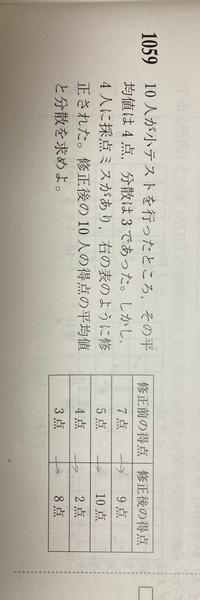 1059 10人が小テストを行ったところ，その平
均値は4点，分散は3であった。しかし，
4人に採点ミスがあり，右の表のように修
正された。修正後の10人の得点の平均値
と分散を求めよ。
修正前の得点 修正後の得点
7点 → 9点
5点 → 10点
4点 → 2点
3点 → 8点